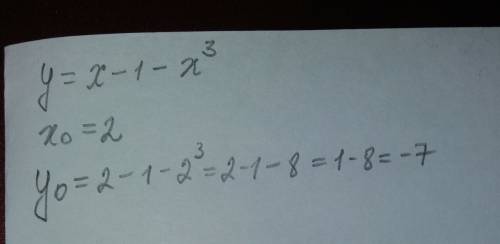 y = x - 1 - x³
x₀ = 2
y₀ = 2 - 1 - 2³ = 2 - 1 - 8 = 1 - 8 = -7